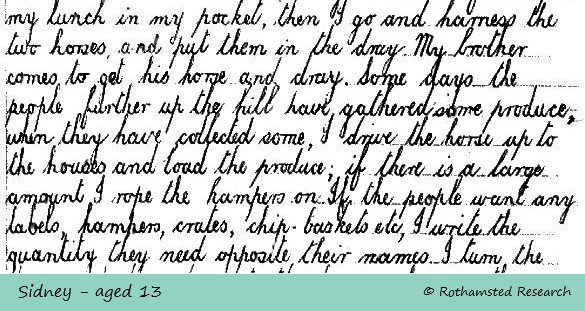 my lunch in my pocket, then I go and harness the
two horses, and put them in the dray. My brother
comes to get his horse and dray. Some days the
people further up the hill have gathered some produce,
when they have collected some, I drive the horse up to
the houses and load the produce; if there is a large
amount I rope the hampers on. If the people want any
labels, hampers, crates, chip-baskets etc, I write the
quantity they need opposite their names. I turn, the
Sidney - aged 13
© Rothamsted Research